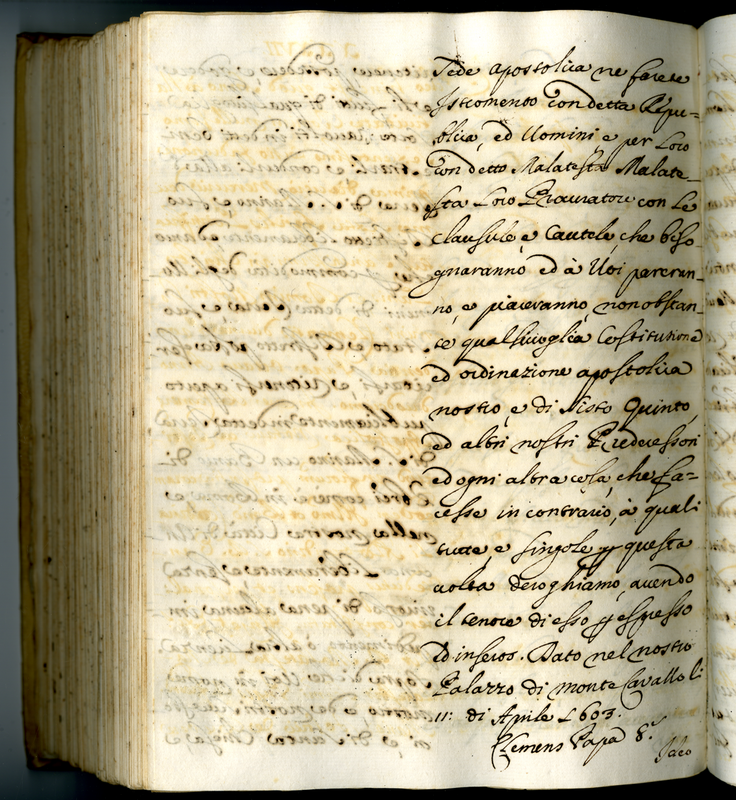 Sede apostolica ne farete
Istromento con detta Repu=
blica, ed Uomini e per Loro
con detto Malatesta Malate-
sta Loro Procuratore con Le
clausule e Cautele che biso-
gnaranno ed à Voi pareran-
no, e piaceranno, non obstan-
te qualsivoglia Costitutione
ed ordinazione apostolica
nostro, e di Sisto Quinto,
ed altri nostri Predecessori
ed ogni altra cosa, che fa=
cesse in contrario, à quali
tutte, e singole p questa
volta deroghiamo, avendo
il tenore di esso p espresso
ed inseros. Dato nel nostro
Palazzo di monte Cavallo li
11: di Aprile 1603.
Clemens Papa 8.